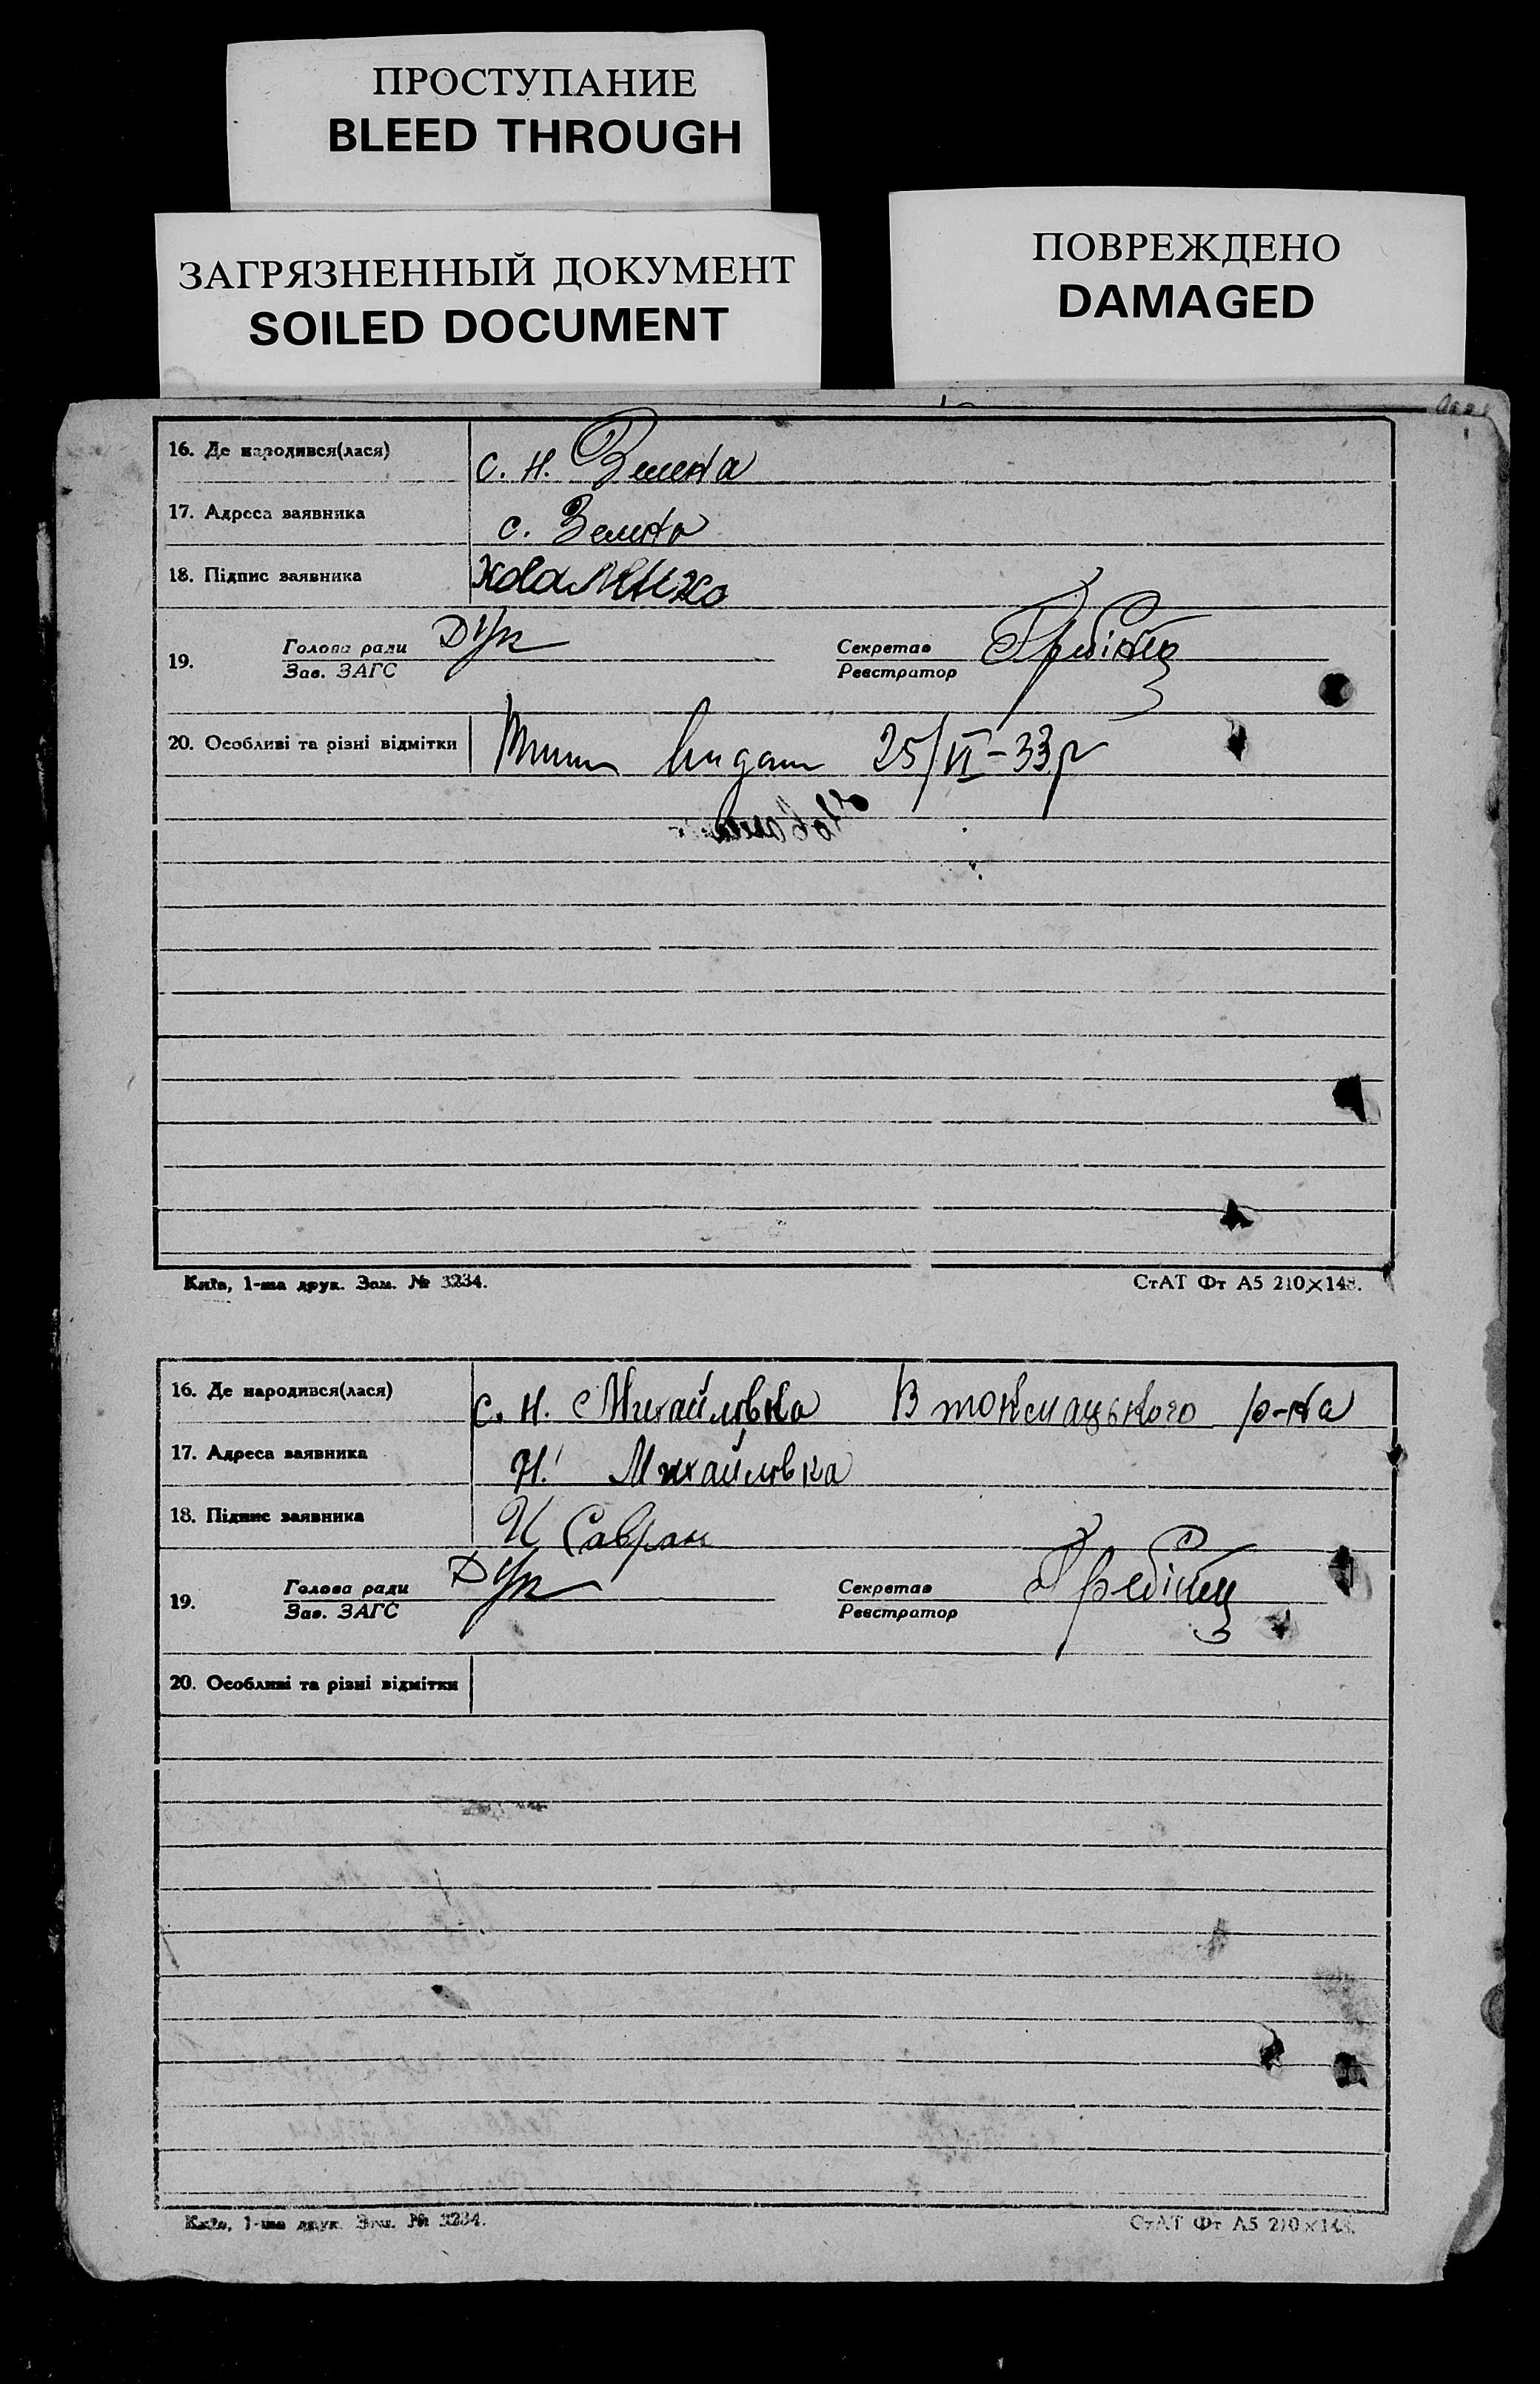 ПРОСТУПАНИЕ
BLEED THROUGH
ЗАГРЯЗНЕННЫЙ ДОКУМЕНТ
SOILED DOCUMENT
ПОВРЕЖДЕНО
DAMAGED
16. Де народився(лася) с. Н.
17. Адреса заявника с.
18. Підпис заявника
19. Голова ради Секретар
Зав. ЗАГС Реєстратор
20. Особливі та різні відмітки видани 25/VI-33р
Київ, 1-ша друк. Зам. № 3234. СтАТ Фт А5 210×148.
16. Де народився(лася) с. Н. Михайлівка В токмацького р-на
17. Адреса заявника Н. Михайлівка
18. Підпис заявника И Савран
19. Голова ради Секретар
Зав. ЗАГС Реєстратор
20. Особливі та різні відмітки
Київ, 1-ша друк. Зам. № 3234. СтАТ Фт А5 210×148.